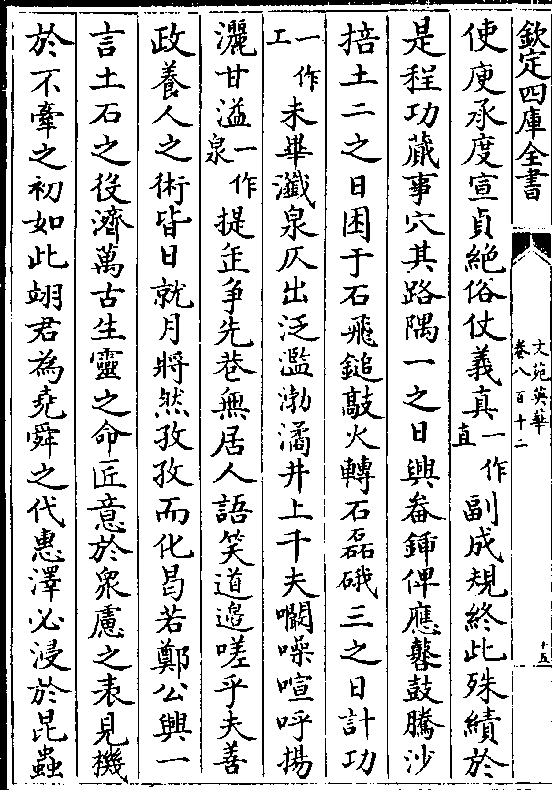 欽定四庫全書
文苑英華
卷八百十二
十五
使庾承度宣貞絶俗仗義真一作直副成規終此殊績於
是程功蕆事穴其路隅一之日興畚鍤俾應鼛鼓騰沙
掊土二之日困于石飛鎚敲火轉石磊硪三之日計功
一作工未畢瀸泉仄出泛濫渤潏井上千夫嘲噪喧呼揚
灑甘溢一作泉提缶争先巷無居人語笑道邉嗟乎夫善
政養人之術皆日就月將然孜孜而化曷若鄭公興一
言土石之役濟萬古生靈之命匠意於衆慮之表見機
於不牽之初如此翊君為堯舜之代惠澤必浸於昆蟲